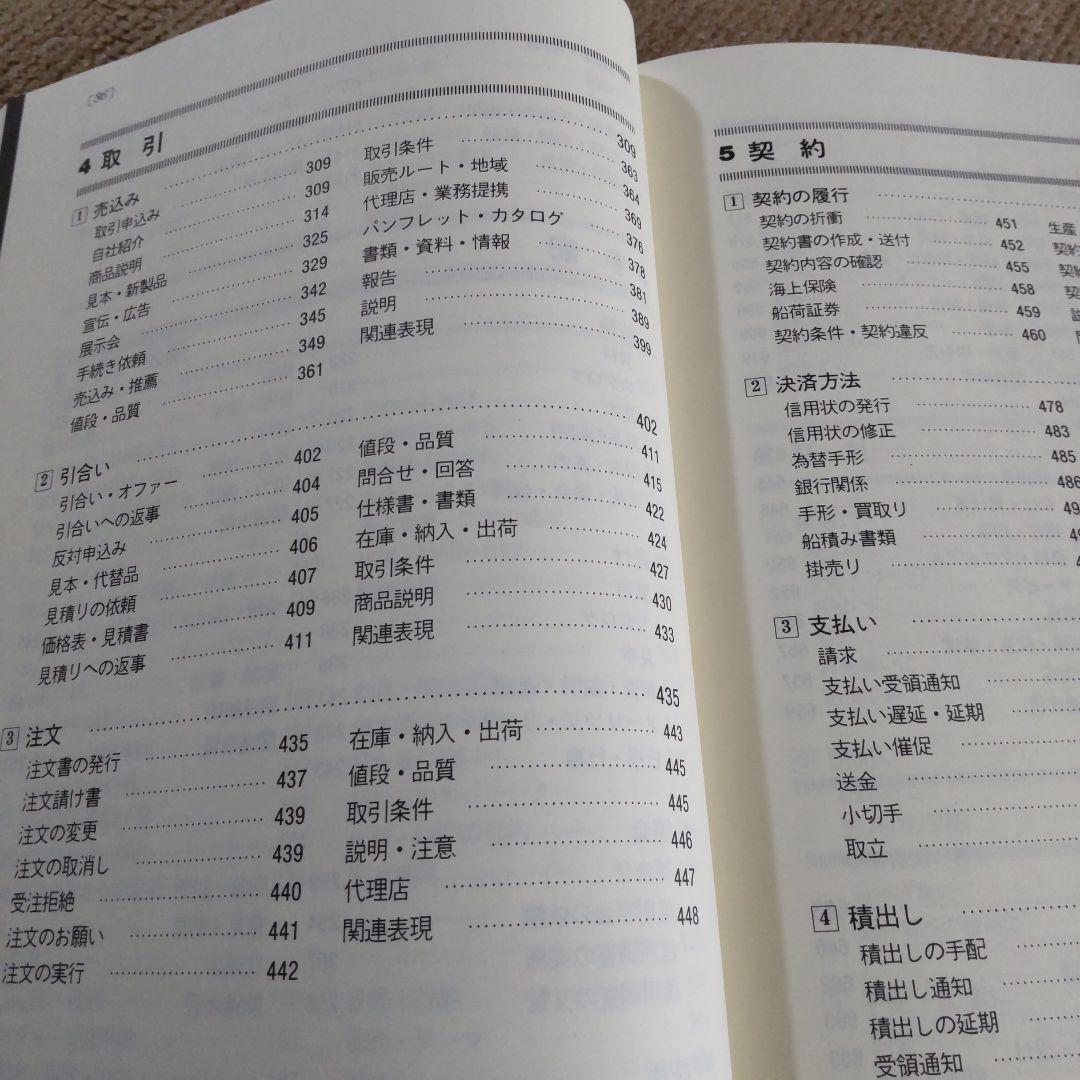 [36]
4 取引
1 売込み 309
取引申込み 309
自社紹介 309
商品説明 314
見本・新製品 325
宣伝・広告 329
展示会 342
手続き依頼 345
売込み・推薦 349
値段・品質 361
取引条件 363
販売ルート・地域 364
代理店・業務提携 369
パンフレット・カタログ 376
書類・資料・情報 378
報告 381
説明 389
関連表現 399
2 引合い 402
引合い・オファー 402
引合いへの返事 404
反対申込み 405
見本・代替品 406
見積りの依頼 407
価格表・見積書 409
見積りへの返事 411
値段・品質 411
問合せ・回答 415
仕様書・書類 422
在庫・納入・出荷 424
取引条件 427
商品説明 430
関連表現 433
3 注文 435
注文書の発行 435
注文請け書 437
注文の変更 439
注文の取消し 439
受注拒絶 440
注文のお願い 441
注文の実行 442
在庫・納入・出荷 443
値段・品質 445
取引条件 445
説明・注意 446
代理店 447
関連表現 448
5 契約
1 契約の履行
契約の折衝 451
契約書の作成・送付 452
契約内容の確認 455
海上保険 458
船荷証券 459
契約条件・契約違反 460
生産
契約
2 決済方法
信用状の発行 478
信用状の修正 483
為替手形 485
銀行関係 486
手形・買取り
船積み書類
掛売り
3 支払い
請求
支払い受領通知
支払い遅延・延期
支払い催促
送金
小切手
取立
4 積出し
積出しの手配
積出し通知
積出しの延期
受領通知